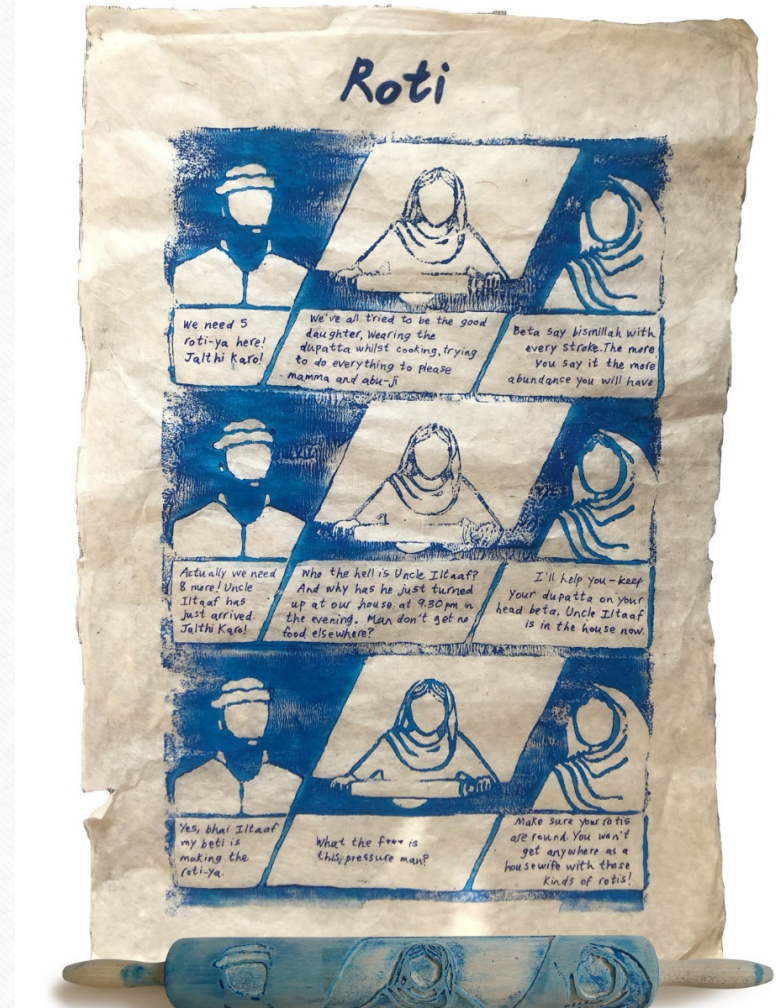 Roti
We need 5
roti-ya here!
Jalthi Karo!
We've all tried to be the good
daughter, Wearing the
dupatta whilst cooking, trying
to do everything to please
mamma and abu-ji
Beta say bismillah with
every stroke. The more
you say it the more
abundance you will have
Actually we need
8 more! Uncle
Iltaaf has
just arrived.
Jalthi Karo!
Who the hell is Uncle Iltaaf?
And why has he just turned
up at our house at 9.30pm in
the evening. Man don't get no
food elsewhere?
I'll help you - keep
your dupatta on your
head beta, Uncle Iltaaf
is in the house now.
Yes, bhai Iltaaf
my beti is
making the
roti-ya.
What the f*** is
this, pressure man?
Make sure your rotis
are round. You won't
get anywhere as a
housewife with those
kinds of rotis!